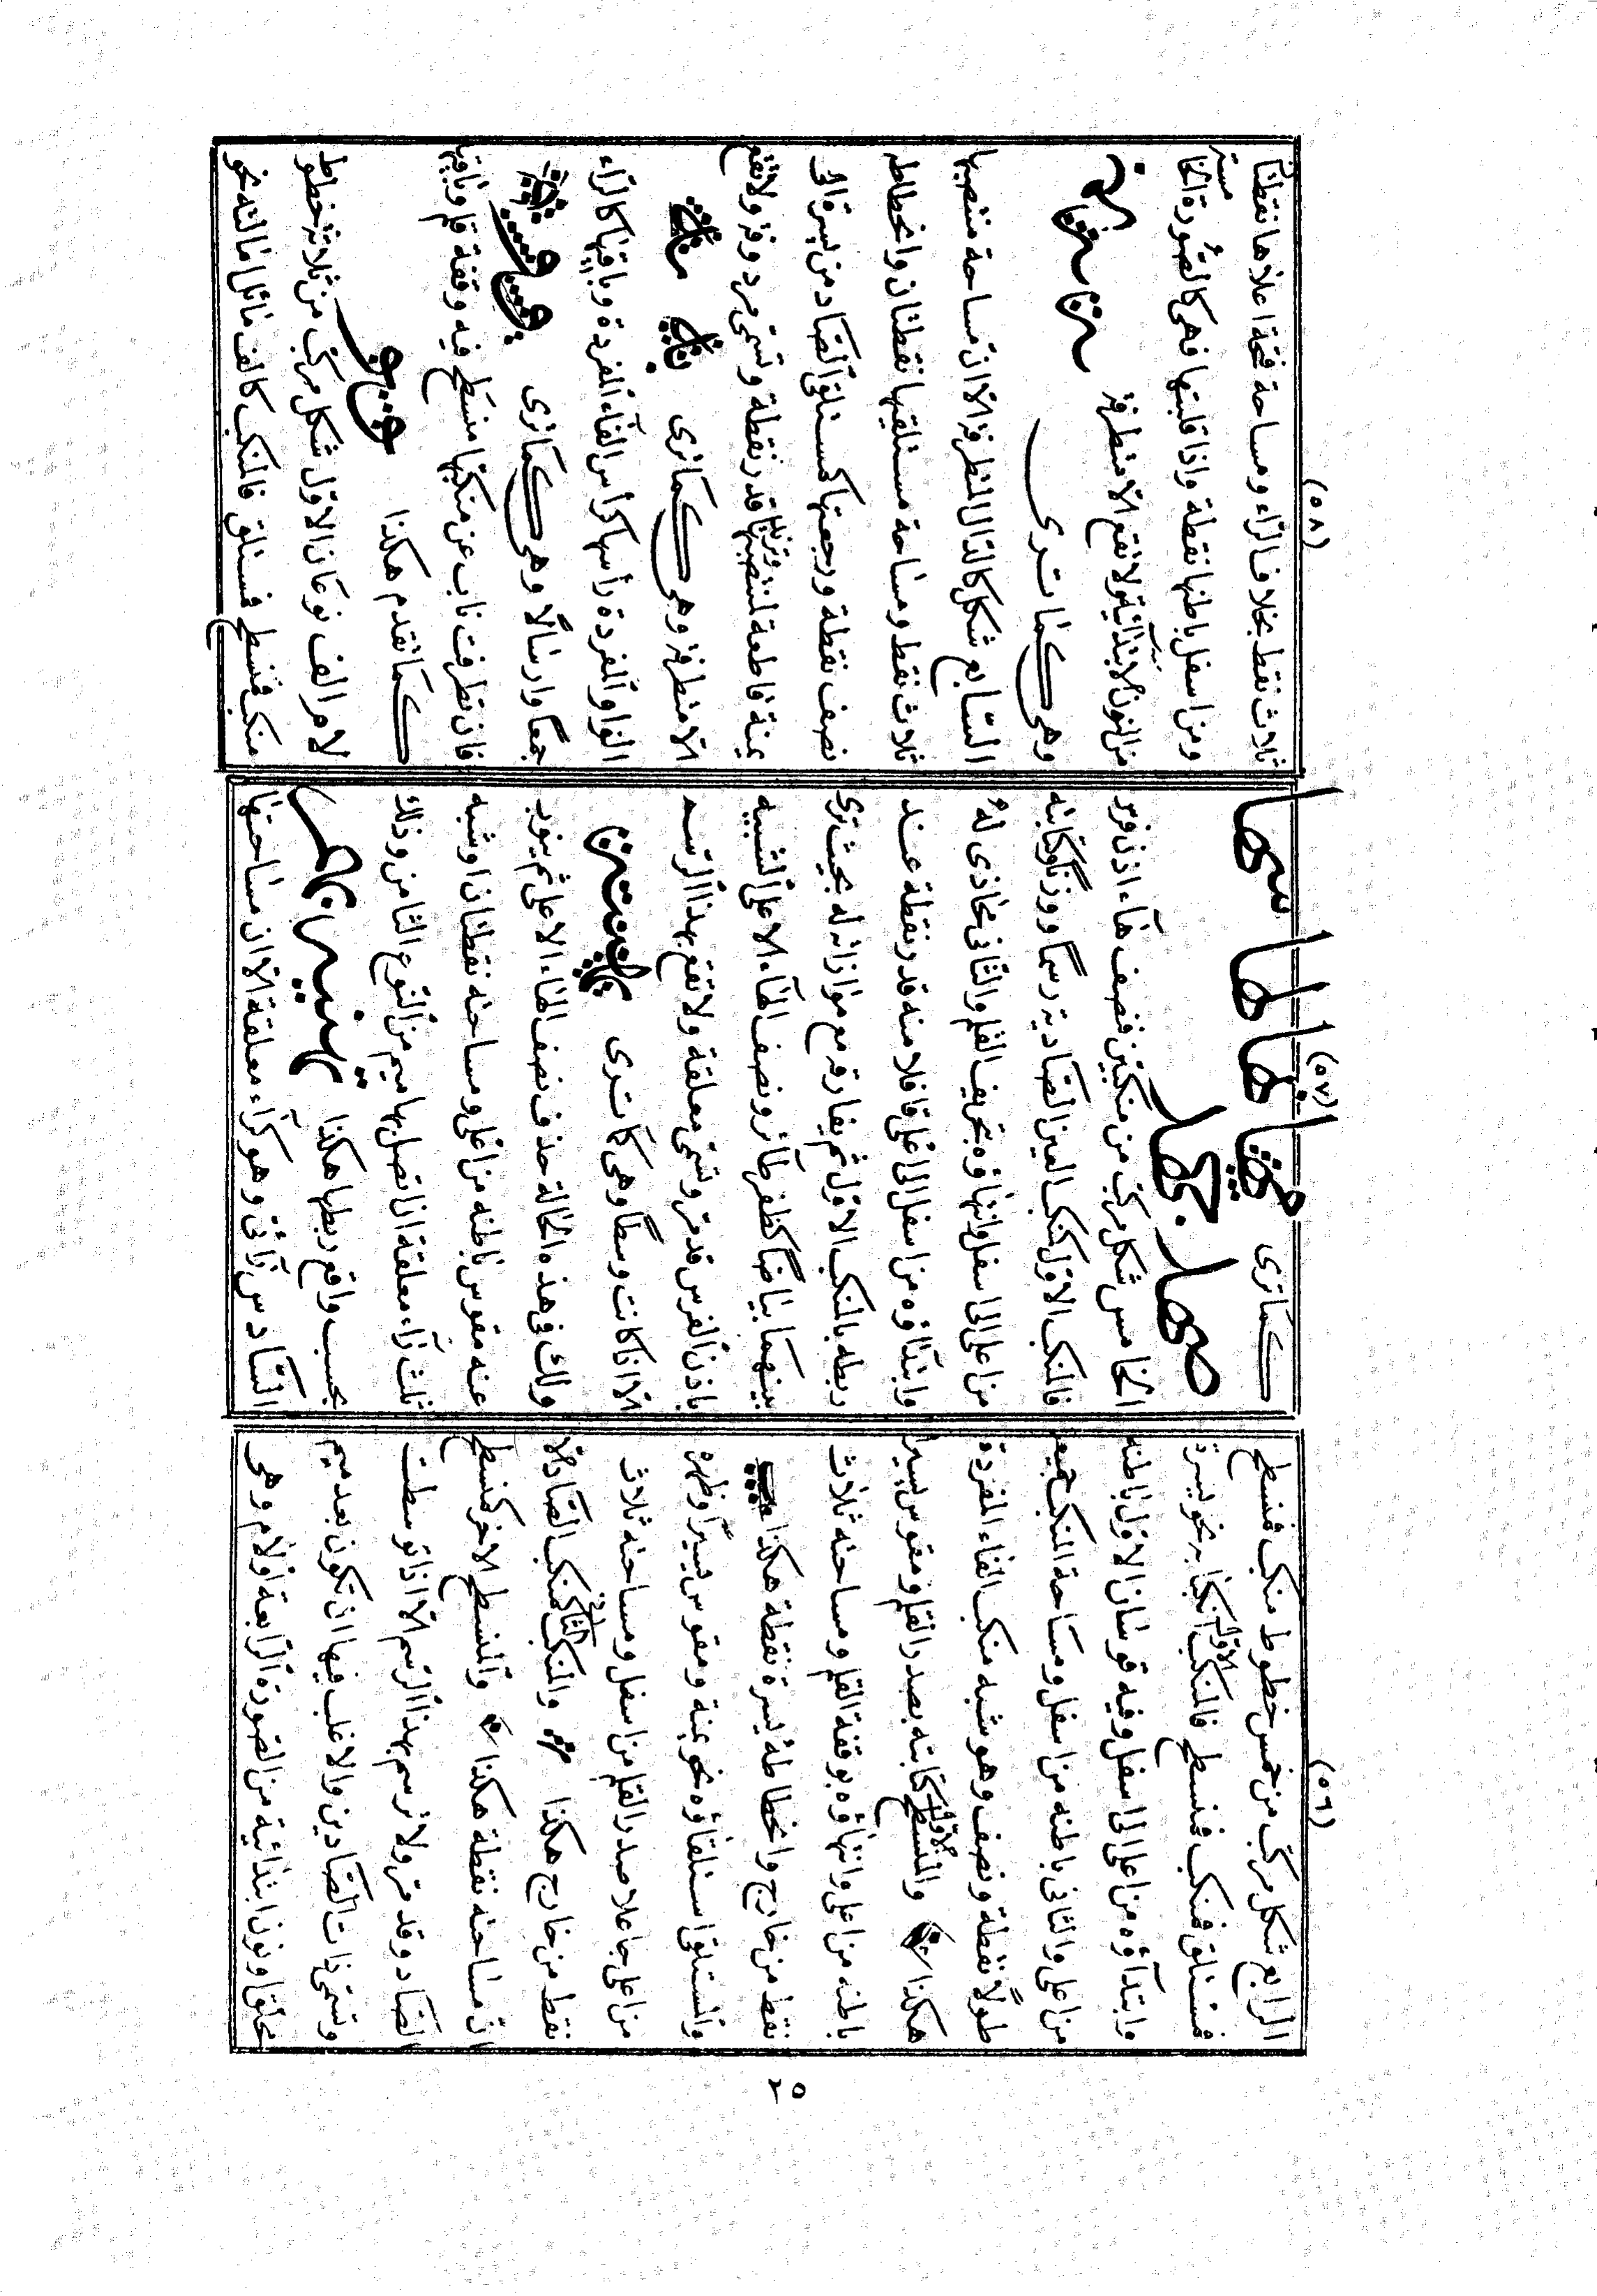 (٥٦)
الرابع شكل مركب من خمس خطوط منكب فمنسطح
فمستلق فمنكب فمنسطح فالمنكب الاول انكبابه نحو يسرة
وابتداؤه من اعلى الى اسفل وفيه قوسان الاول باطنه
من اعلى والثانى باطنه من اسفل ومساحة المنكب جميعا
طولا نقطة ونصف وهو شبه منكب الفاء المفردة
هكذا والمنسطح الاول كتابته بصدر القلم ومقوس يسيرا
باطنه من اعلى وانتهاؤه بوقفة القلم ومساحته ثلاث
نقط من خارج وانحطاطه يسرة نقطة هكذا
والمستلقى استلقاؤه نحو يمنة ومقوس يسيرا وظهره
من اعلى جاعلا صدر القلم من اسفل ومساحته ثلاث
نقط من خارج هكذا والمنكب الثانى كمنكب الصاد مثلا
ان مساحته نقطة هكذا والمنسطح الآخر كمنسطح
الصاد وقد مر ولا ترسم بهذا الرسم الا اذا توسطت
وتسمى ذات الصادين والاغلب فيها ان تكون بعد ميم
محقق ونون ابتدائية من الصورة الرابعة او لام وهى
(٥٧)
كما ترى
الخامس شكل مركب من منكبين فنصف هاء اذن فرس
فالمنكب الاول كمنكب العين الصادية رسما ووزنا وكتابته
من اعلى الى اسفل وانتهاؤه بتحريف القلم والثانى محاذى له
وابتداؤه من اسفل الى اعلى فاقلا منه قدر نقطة عند
ربطه بالمنكب الاول ثم يفارقه مع موازاته له بحيث ترى
بينهما بياضا كظفر طائر ونصف الهاء الاعلى الشبيه
باذن الفرس قد مر وتسمى معلقة ولا تقع بهذا الرسم
الا اذا كانت وسطا وهى كما ترى
ولك فى هذه الحالة حذف نصف الهاء الاعلى ثم ينوب
عنه مقوس باطنه من اعلى ومساحته نقطتان او شبه
ثلث راء معلقة اذا اتصل بها ميم من النوع الثامن وذلك
بحسب واقع ربطها هكذا
السادس رائى وهو كراء معلقة الا ان مساحتها
(٥٨)
ثلاث نقط بخلاف الراء ومساحة فتحة اعلاها نقطتان
ومن اسفل باطنها نقطة واذا قلبتها فهى كالصورة الخامسة
من النون الابتدائية ولا تقع الا متطرفة
وهى كما ترى
السابع شكل كالدال المتطرفة الا ان مساحة منتصبها
ثلاث نقط ومساحة مستلقيها نقطتان وانحطاطه
نصف نقطة ورجعتها كمستلق الصاد من يسرة الى
يمنة قاطعة لمنتصبها وتزيد قدر نقطة وتسمى مردوفة ولا تقع
الا متطرفة وهى كما ترى
الواو المفردة رأسها كرأس الفاء المفردة وباقيها كالراء
جمعا وارسالا وهى كما ترى
فان تطرفت ناب عن منكبها منسطح فيه وقفة قلم وباقيها
كما تقدم هكذا
لام الف نوعان الاول شكل مركب من ثلاثة خطوط
منكب فمنسطح فمستلق فالمنكب كالف مائل امالته نحو
٢٥